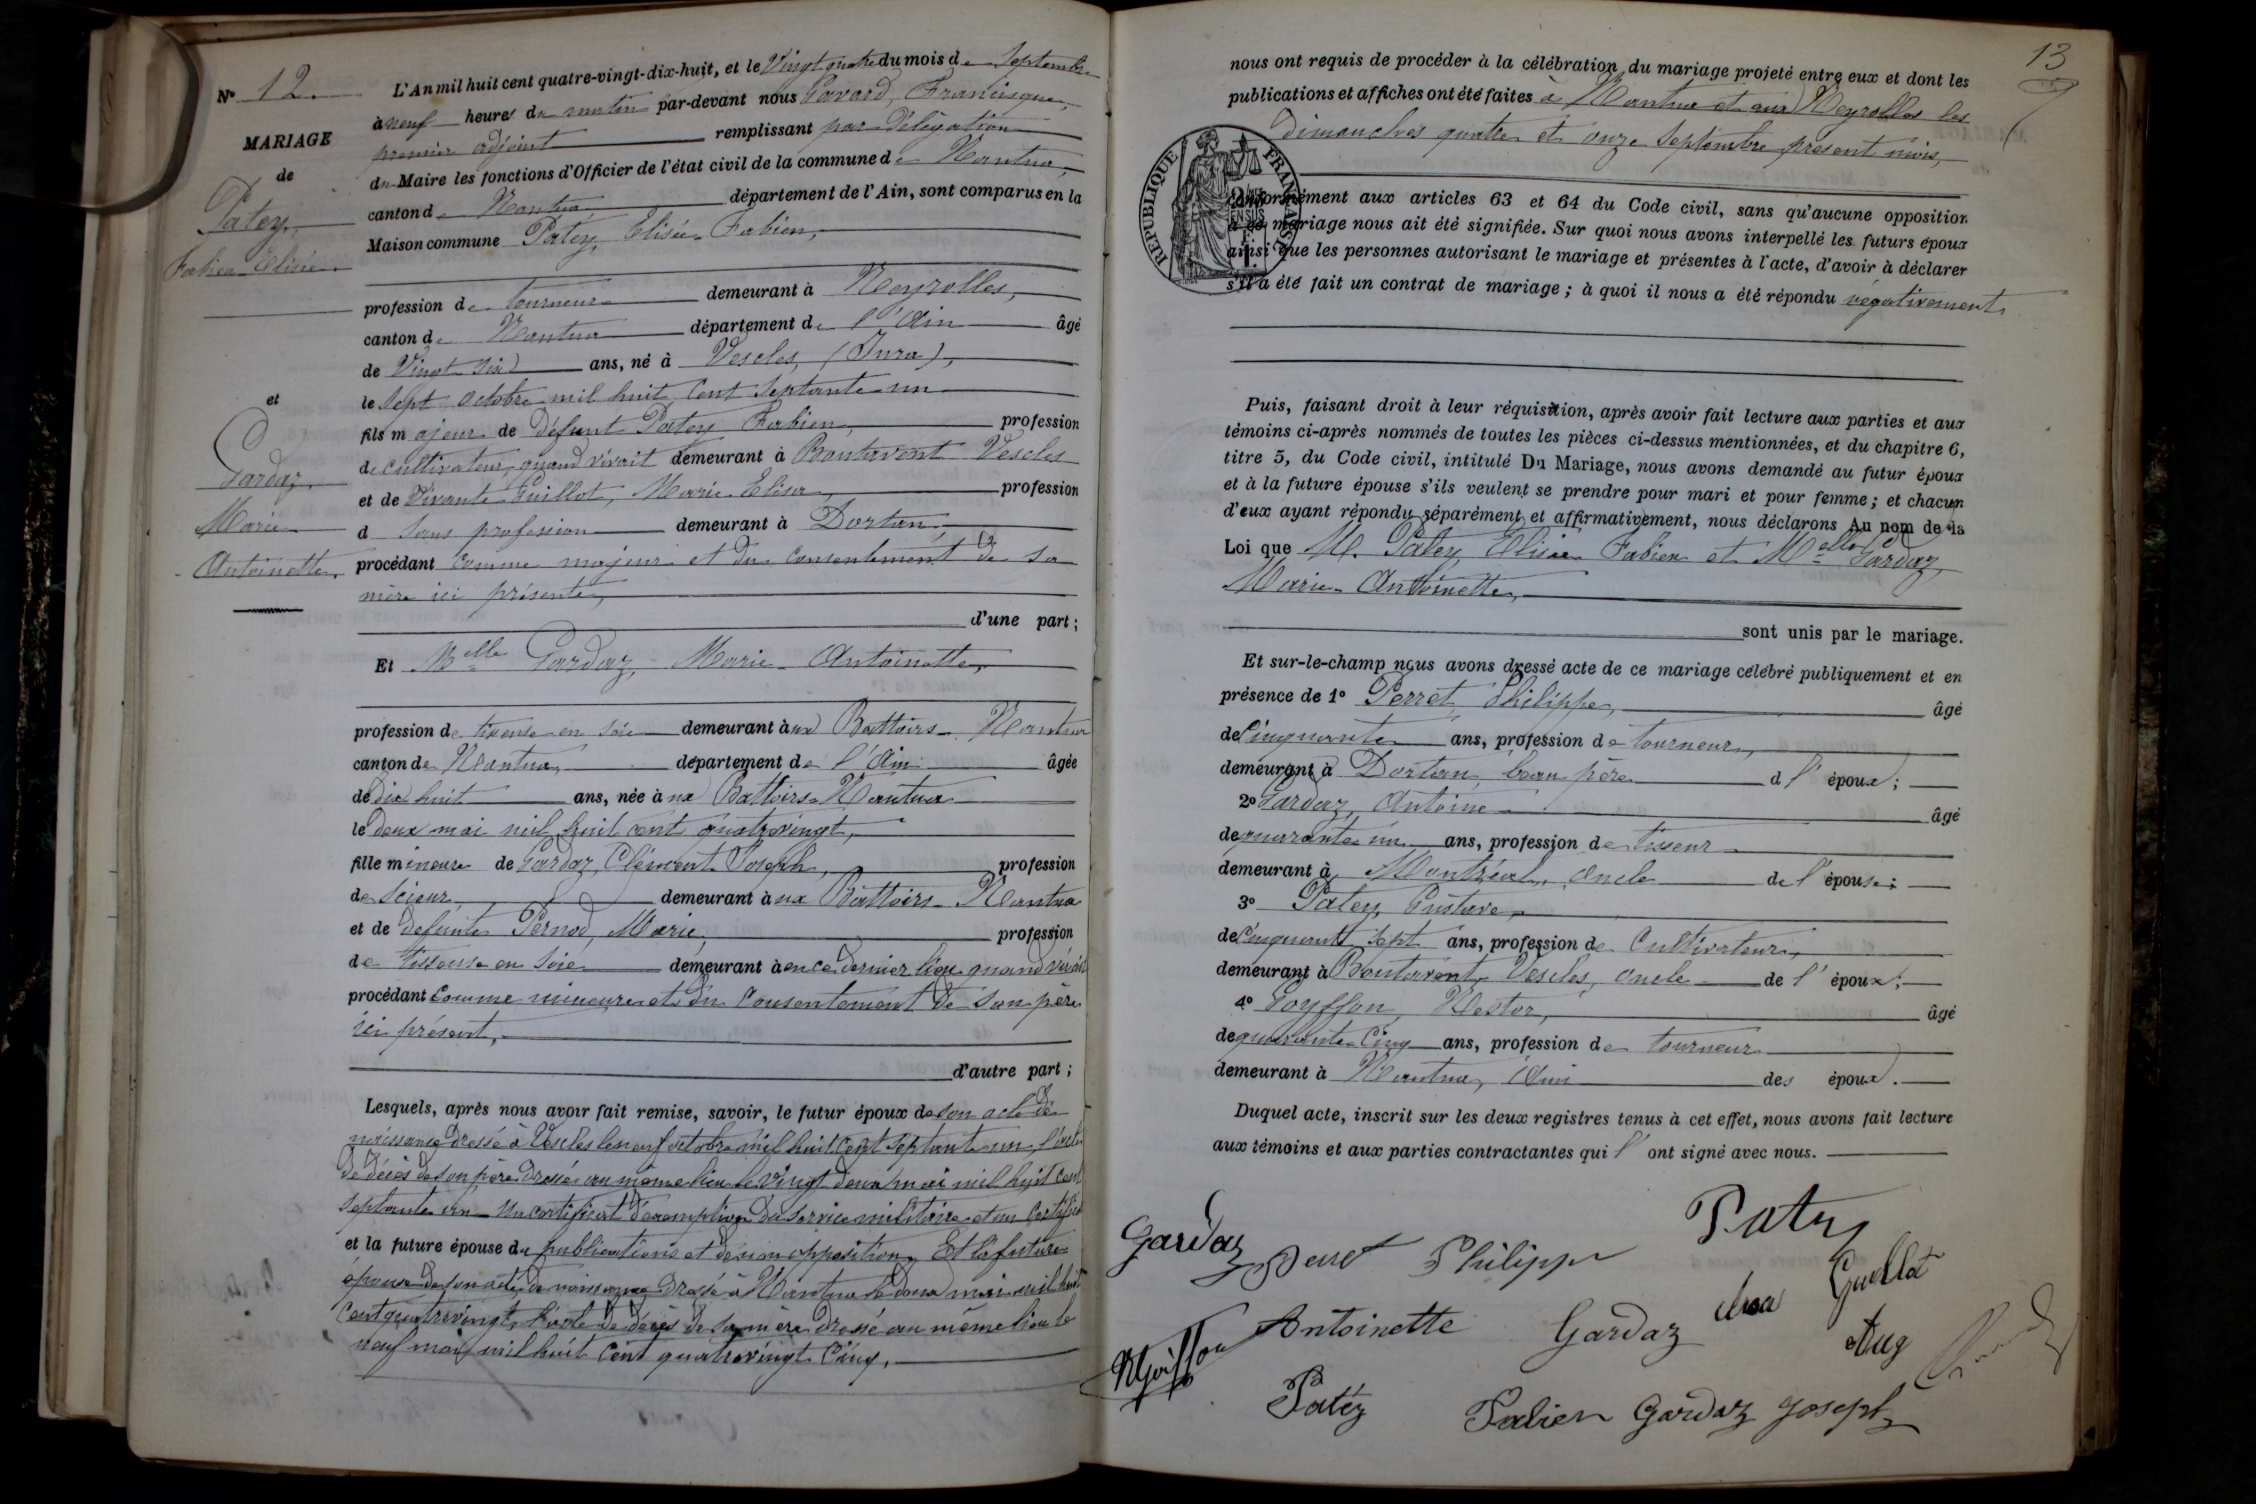 N° 12.
MARIAGE
de
Patey,
Fabien Elisée.
et
Gardaz,
Marie
Antoinette.
L'An mil huit cent quatre-vingt-dix-huit, et le Vingt quatre du mois de Septembre
à neuf heures du matin par-devant nous Savard, Francisque,
premier adjoint remplissant par délégation
du Maire les fonctions d'Officier de l'état civil de la commune de Nantua,
canton de Nantua département de l'Ain, sont comparus en la
Maison commune Patey, Elisée Fabien,
profession de tourneur demeurant à Neyrolles,
canton de Nantua département de l'Ain âgé
de Vingt six ans, né à Vescles, (Jura),
le sept octobre mil huit cent septante un
fils majeur de défunt Patey Fabien, profession
de cultivateur, quand vivait demeurant à Boutavent Vescles
et de vivante Guillot, Marie Elisa, profession
d sans profession demeurant à Dortan
procédant comme majeur et du consentement de sa
mère ici présente,
d'une part;
Et Melle Gardaz, Marie Antoinette,
profession de tisseuse en soie demeurant aux Battoirs Nantua
canton de Nantua, département de l'Ain âgée
de dix huit ans, née à ux Battoirs Nantua
le deux mai mil huit cent quatre vingt,
fille mineure de Gardaz, Clément Joseph, profession
de scieur, demeurant à ux Battoirs Nantua
et de défunte Pernod, Marie, profession
de tisseuse en soie demeurant à en ce dernier lieu quand vivait
procédant comme mineure et du consentement de son père
ici présent,
d'autre part;
Lesquels, après nous avoir fait remise, savoir, le futur époux de son acte de
naissance dressé à Vescles le neuf octobre mil huit cent septante un, l'acte
de décès de son père dressé au même lieu le vingt deux mai mil huit cent
septante un Un certificat d'exemption du service militaire et un certificat
et la future épouse de publications et de non opposition, Et la future
épouse de son acte de naissance dressé à Nantua le deux mai mil huit
cent quatre vingt, l'acte de décès de sa mère dressé au même lieu le
neuf mai mil huit cent quatre vingt cinq,
13
nous ont requis de procéder à la célébration du mariage projeté entre eux et dont les
publications et affiches ont été faites à Nantua et aux Neyrolles les
dimanches quatre et onze Septembre présent mois,
RÉPUBLIQUE FRANÇAISE
conformément aux articles 63 et 64 du Code civil, sans qu'aucune opposition
à ce mariage nous ait été signifiée. Sur quoi nous avons interpellé les futurs époux
ainsi que les personnes autorisant le mariage et présentes à l'acte, d'avoir à déclarer
s'il a été fait un contrat de mariage; à quoi il nous a été répondu négativement
Puis, faisant droit à leur réquisition, après avoir fait lecture aux parties et aux
témoins ci-après nommés de toutes les pièces ci-dessus mentionnées, et du chapitre 6,
titre 5, du Code civil, intitulé Du Mariage, nous avons demandé au futur époux
et à la future épouse s'ils veulent se prendre pour mari et pour femme; et chacun
d'eux ayant répondu séparément et affirmativement, nous déclarons Au nom de la
Loi que M. Patey, Elisée Fabien et Melle Gardaz,
Marie Antoinette,
sont unis par le mariage.
Et sur-le-champ nous avons dressé acte de ce mariage célébré publiquement et en
présence de 1° Perret, Philippe, âgé
de cinquante ans, profession de tourneur,
demeurant à Dortan, beau père d l' époux;
2° Gardaz, Antoine âgé
de quarante un ans, profession de tisseur
demeurant à Montréal, oncle de l' épouse;
3° Patey, Gustave,
de cinquante sept ans, profession de cultivateur,
demeurant à Boutavent, Vescles, oncle de l' époux;
4° Goyffon, Nestor, âgé
de quarante cinq ans, profession de tourneur
demeurant à Nantua, Ami des époux.
Duquel acte, inscrit sur les deux registres tenus à cet effet, nous avons fait lecture
aux témoins et aux parties contractantes qui l' ont signé avec nous.
Gardaz Perret Philippe Patey
Antoinette Gardaz Guillot
NGoiffon Aug
Patey Fabien Gardaz Joseph